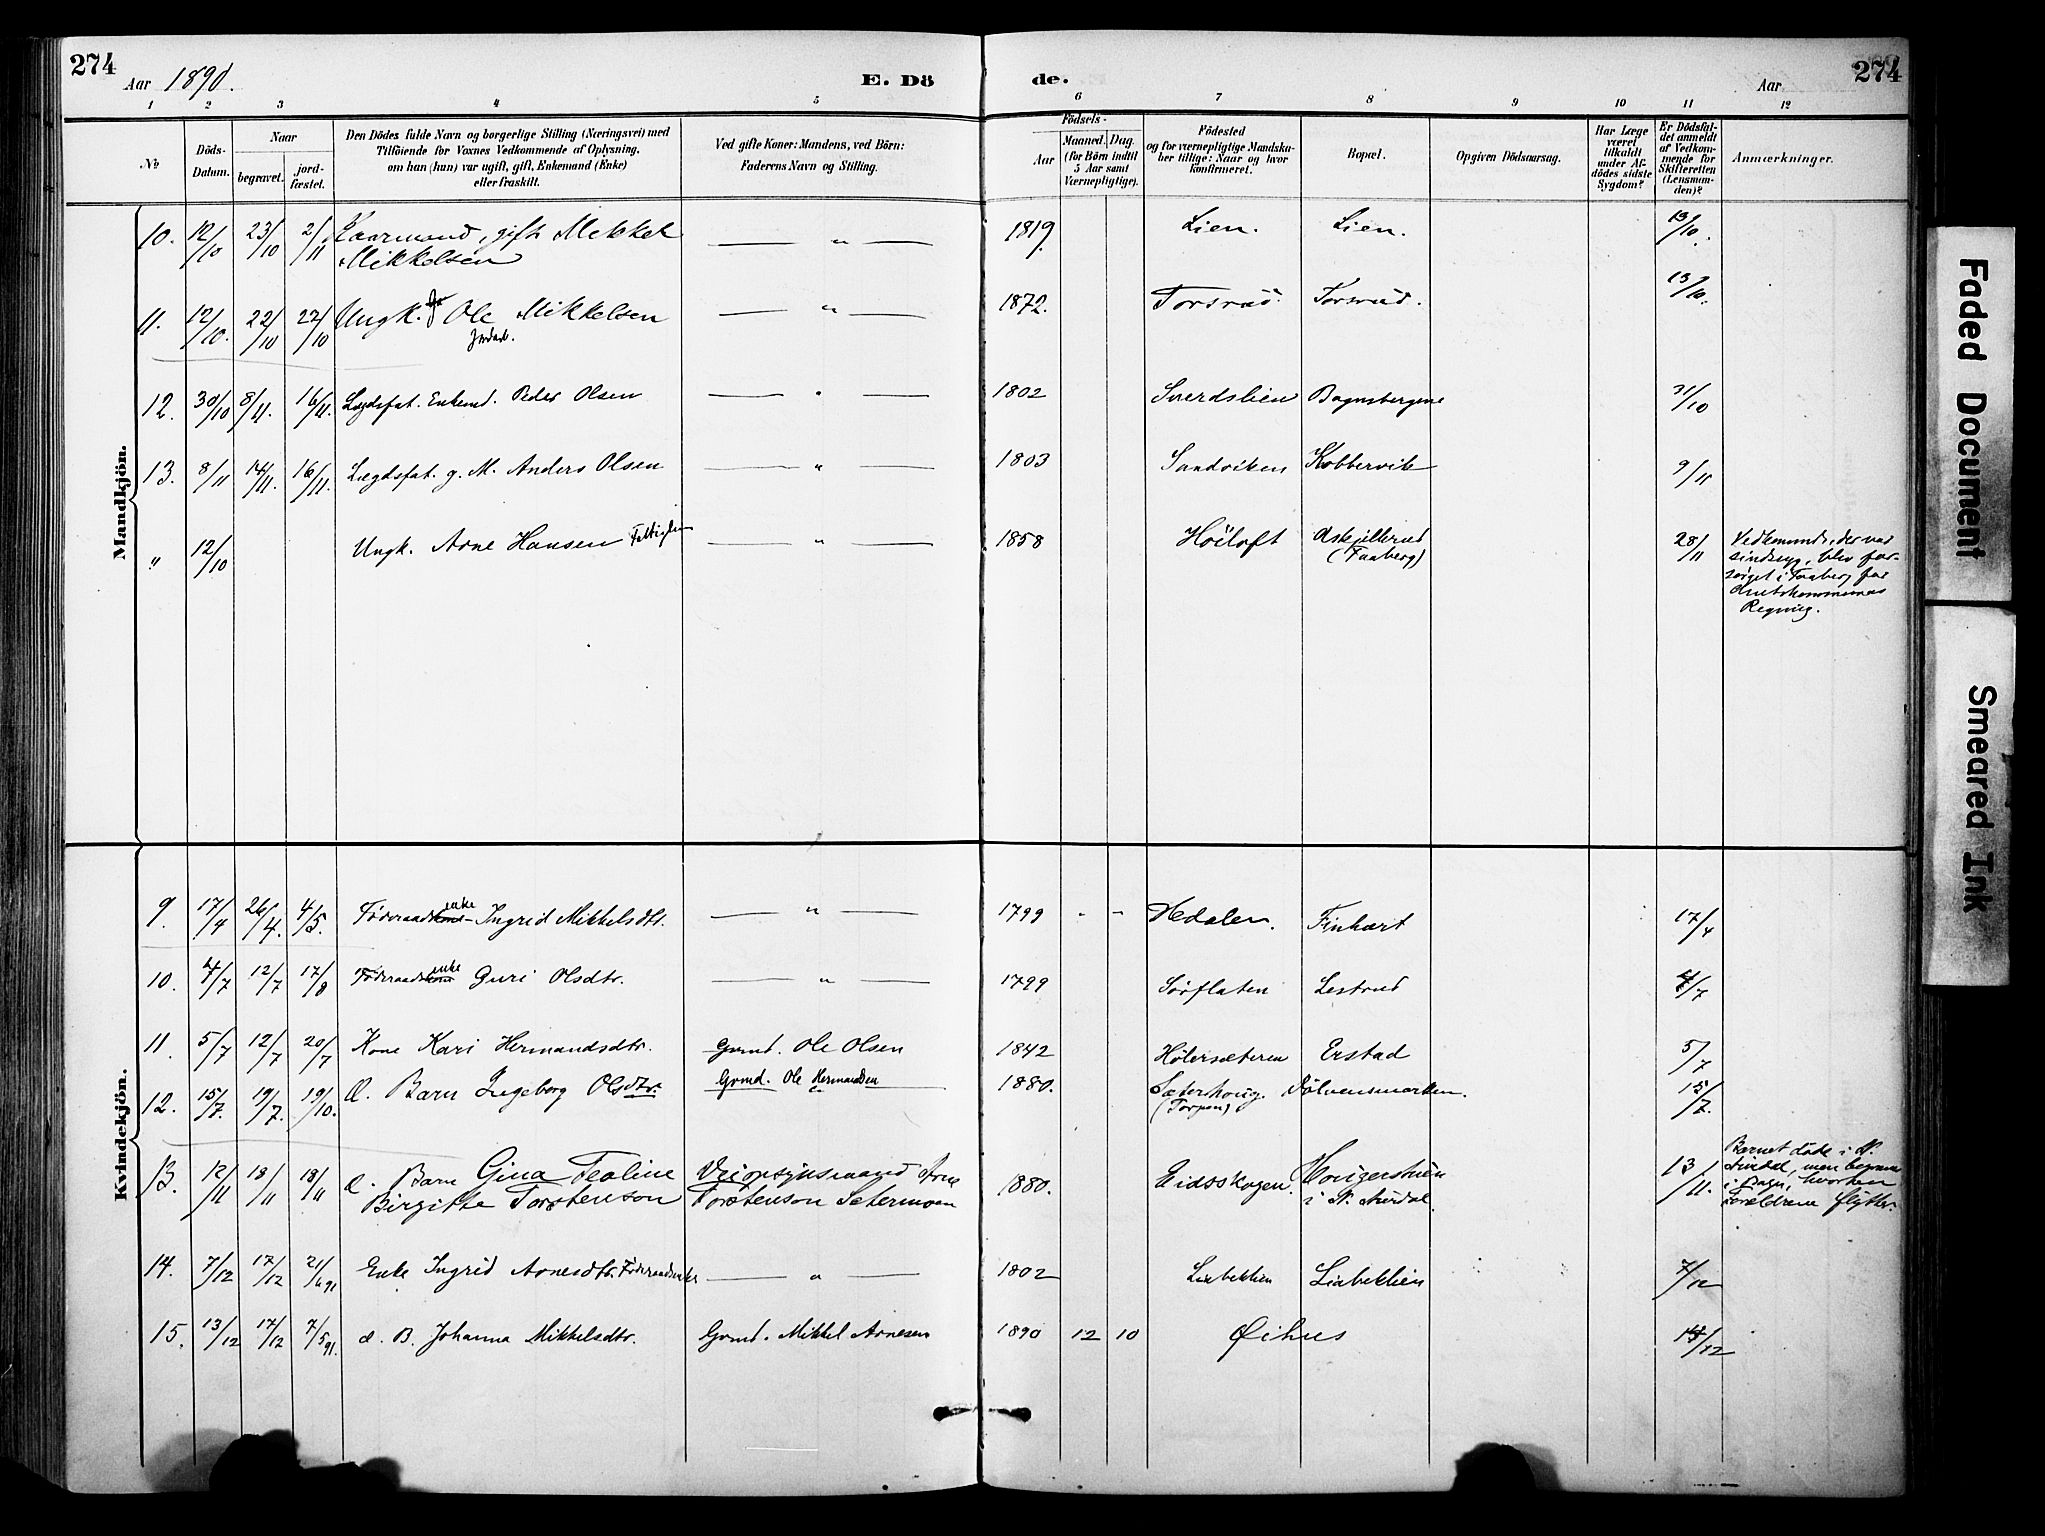 274
Aar 1890.
E. Dö
de.
Aar
274
1 2 3 4 5 6 7 8 9 10 11 12
No
Döds-
Datum.
Naar
begravet.
jord-
fæstet.
Den Dödes fulde Navn og borgerlige Stilling (Næringsvei) med
Tilföiende for Voxnes Vedkommende af Oplysning.
om han (hun) var ugift, gift, Enkemand (Enke)
eller fraskilt.
Ved gifte Koner: Mandens, ved Börn:
Faderens Navn og Stilling.
Födsels-
Aar
Maaned.
Dag.
(for Börn indtil
5 Aar samt
Værnepligtige).
Födested
og for værnepligtige Mandska-
ber tillige: Naar og hvor
konfirmeret.
Bopæl.
Opgiven Dödsaarsag.
Har Læge
været
tilkaldt
under Af-
dödes sidste
Sygdom?
Er Dödsfal-
det anmeldt
af Vedkom-
mende for
Skifteretten
(Lensman-
den)?
Anmærkninger.
Mandkjön.
10. 12/10 23/10 2/11 Kaarmand, gift Mikkel
Mikkelsen — " — 1819. Lien. Lien. 13/10.
11. 12/10. 22/10 22/10 Ungk. Ole Mikkelsen — " — 1872. Torsrud. Torsrud. 13/10.
12. 30/10 8/11. 16/11. Lægdsfat. Enkemd. Peder Olsen — " — 1802 Sverdslien Bagnsbergene 31/10
13. 8/11 14/11. 16/11. Lægdsfat. g. M. Anders Olsen — " — 1803 Sandviken Kobbervik 9/11
" 12/10 Ungk. Arne Hansen Fattiglem — " — 1858 Höiloft Askjellerud
(Faaberg) 28/11 Vedkommende, der var
sindssyg, blev for-
sörget i Faaberg for
Amtskommunens
Regning.
Kvindekjön.
9. 17/4 26/4. 4/5. Föderaadsenke Ingrid Mikkelsdtr. — " — 1799 - - Hedalen. Finhært 17/4
10. 4/7 12/7 17/8 Föderaadsenke Guri Olsdtr. — " — 1799 Sörflaten Lestrud 4/7
11. 5/7 12/7 20/7 Kone Kari Hermandsdtr. Grmd. Ole Olsen 1842 Hölersæteren Erstad 5/7
12. 15/7. 19/7. 19/10. Æ. Barn Ingeborg Olsdtr. Grmd. Ole Hermandsen 1880. Sæterhoug.
(Torpen) Dölvensmarken. 15/7.
13. 12/11 18/11 18/11 Æ. Barn Gina Tealine
Birgitte Torstenson Veiopsynsmand Arne
Torstenson Setermoen 1880. Eidsskogen.
i N. Aurdal. 13/11. Barnet döde i N.
Aurdal, men begraves
i Bagn, hvorhen
Forældrene flytter.
14. 7/12 17/12 21/6 91 Enke Ingrid Arnesdtr. Föderaadsenke — " — 1802 Liabekkien Liabekkien 7/12
15. 13/12 17/12 7/5 91. Æ. B. Johanna Mikkelsdtr. Grmd. Mikkel Arnesen 1890 12 10 Öihus /12
Faded Document
Smeared Ink